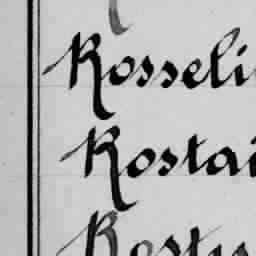 Rosseli
Rostai
Rosty